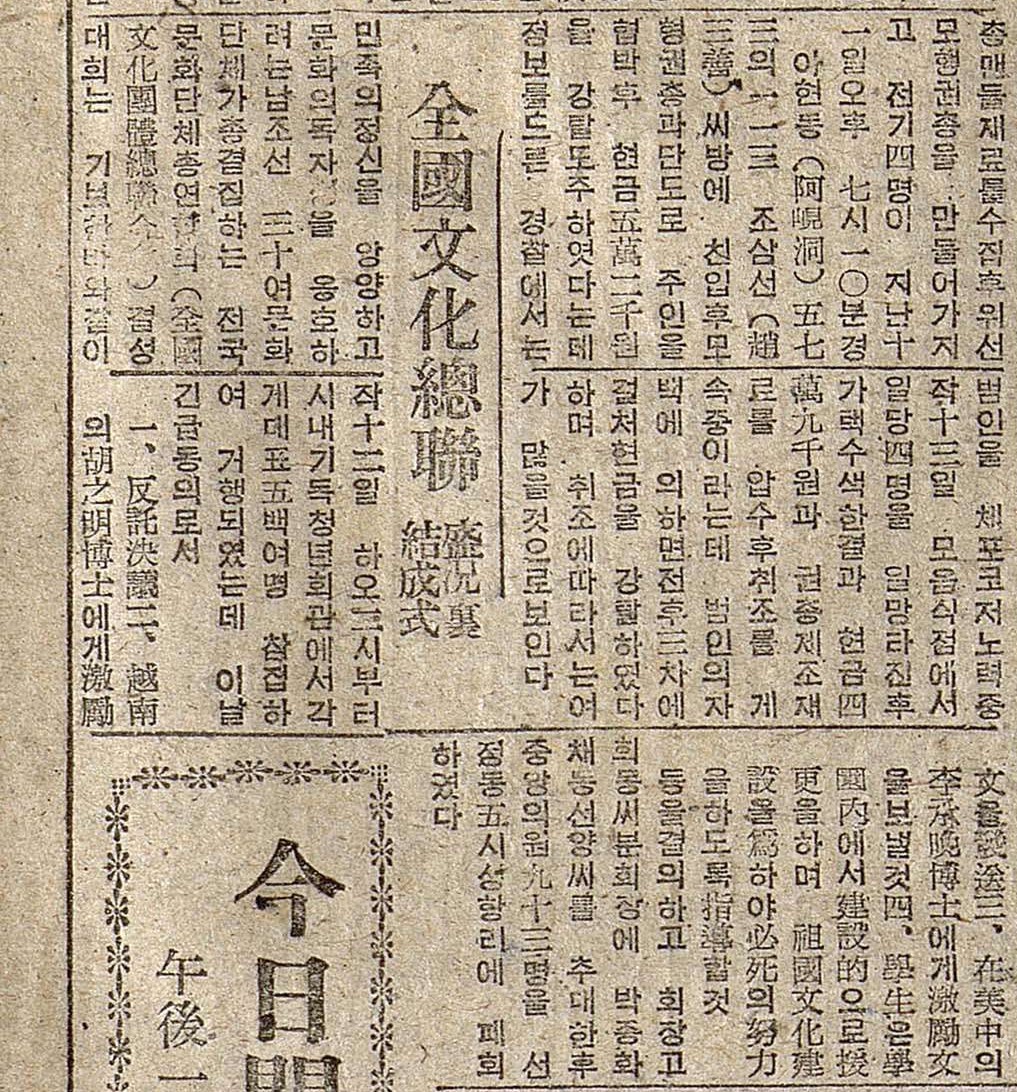 총맨들재료를수집후위선
모행권총을 만들어가지
고 전기四명이 지난十
一일오후 七시一〇분경
아현동(阿峴洞)五七
三의一二三 조삼선(趙
三善)씨방에 친입후모
형권총과단도로 주인을
협박후 현금五萬二千원
을 강탈도주하엿다는데
정보를드른 경찰에서는
범인을 체포코저노력중
작十三일 모음식점에서
일당四명을 일망타진후
가택수색한결과 현금四
萬九千원과 권총제조재
료를 압수후취조를 게
속중이라는데 범인의자
백에 의하면전후三차에
걸처현금을 강탈하였다
하며 취조에따라서는여
가 많을것으로보인다
全國文化總聯
盛況裏
結成式
민족의정신을 앙양하고
문화의독자성을 옹호하
려는남조선 三十여문화
단체가총결집하는 전국
문화단체총연합회(全國
文化團體總聯合会)결성
대회는 기보한바와같이
작十二일 하오三시부터
시내기독청년회관에서각
게대표五백여명 참집하
여 거행되였는데 이날
긴급동의로서
一、反託決議二、越南
의胡之明博士에게激勵
文을發送三、在美中의
李承晩博士에게激勵文
을보낼것四、學生은學
園內에서建設的으로援
更을하며 祖國文化建
設을爲하야必死의努力
을하도록指導할것
등을결의하고 회장고
희동씨분회장에 박종화
채동선양씨를 추대한후
중앙의원九十三명을 선
정동五시성황리에 폐회
하였다
今日開
午後一